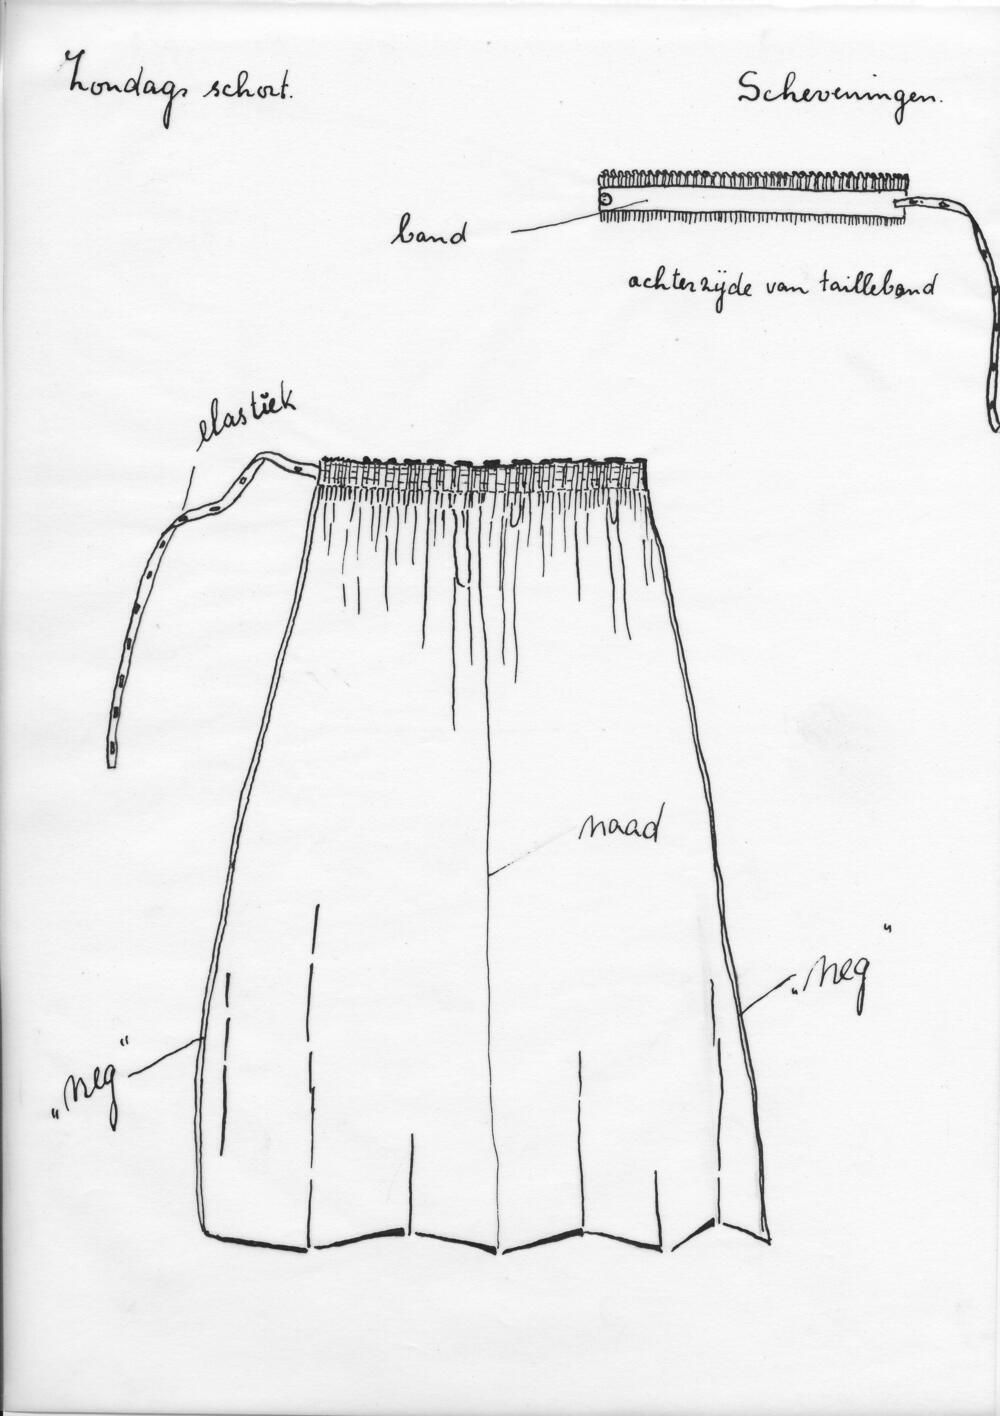 Zondags schort.
Scheveningen.
band
achterzijde van tailleband
elastiek
naad
„neg"
„neg"